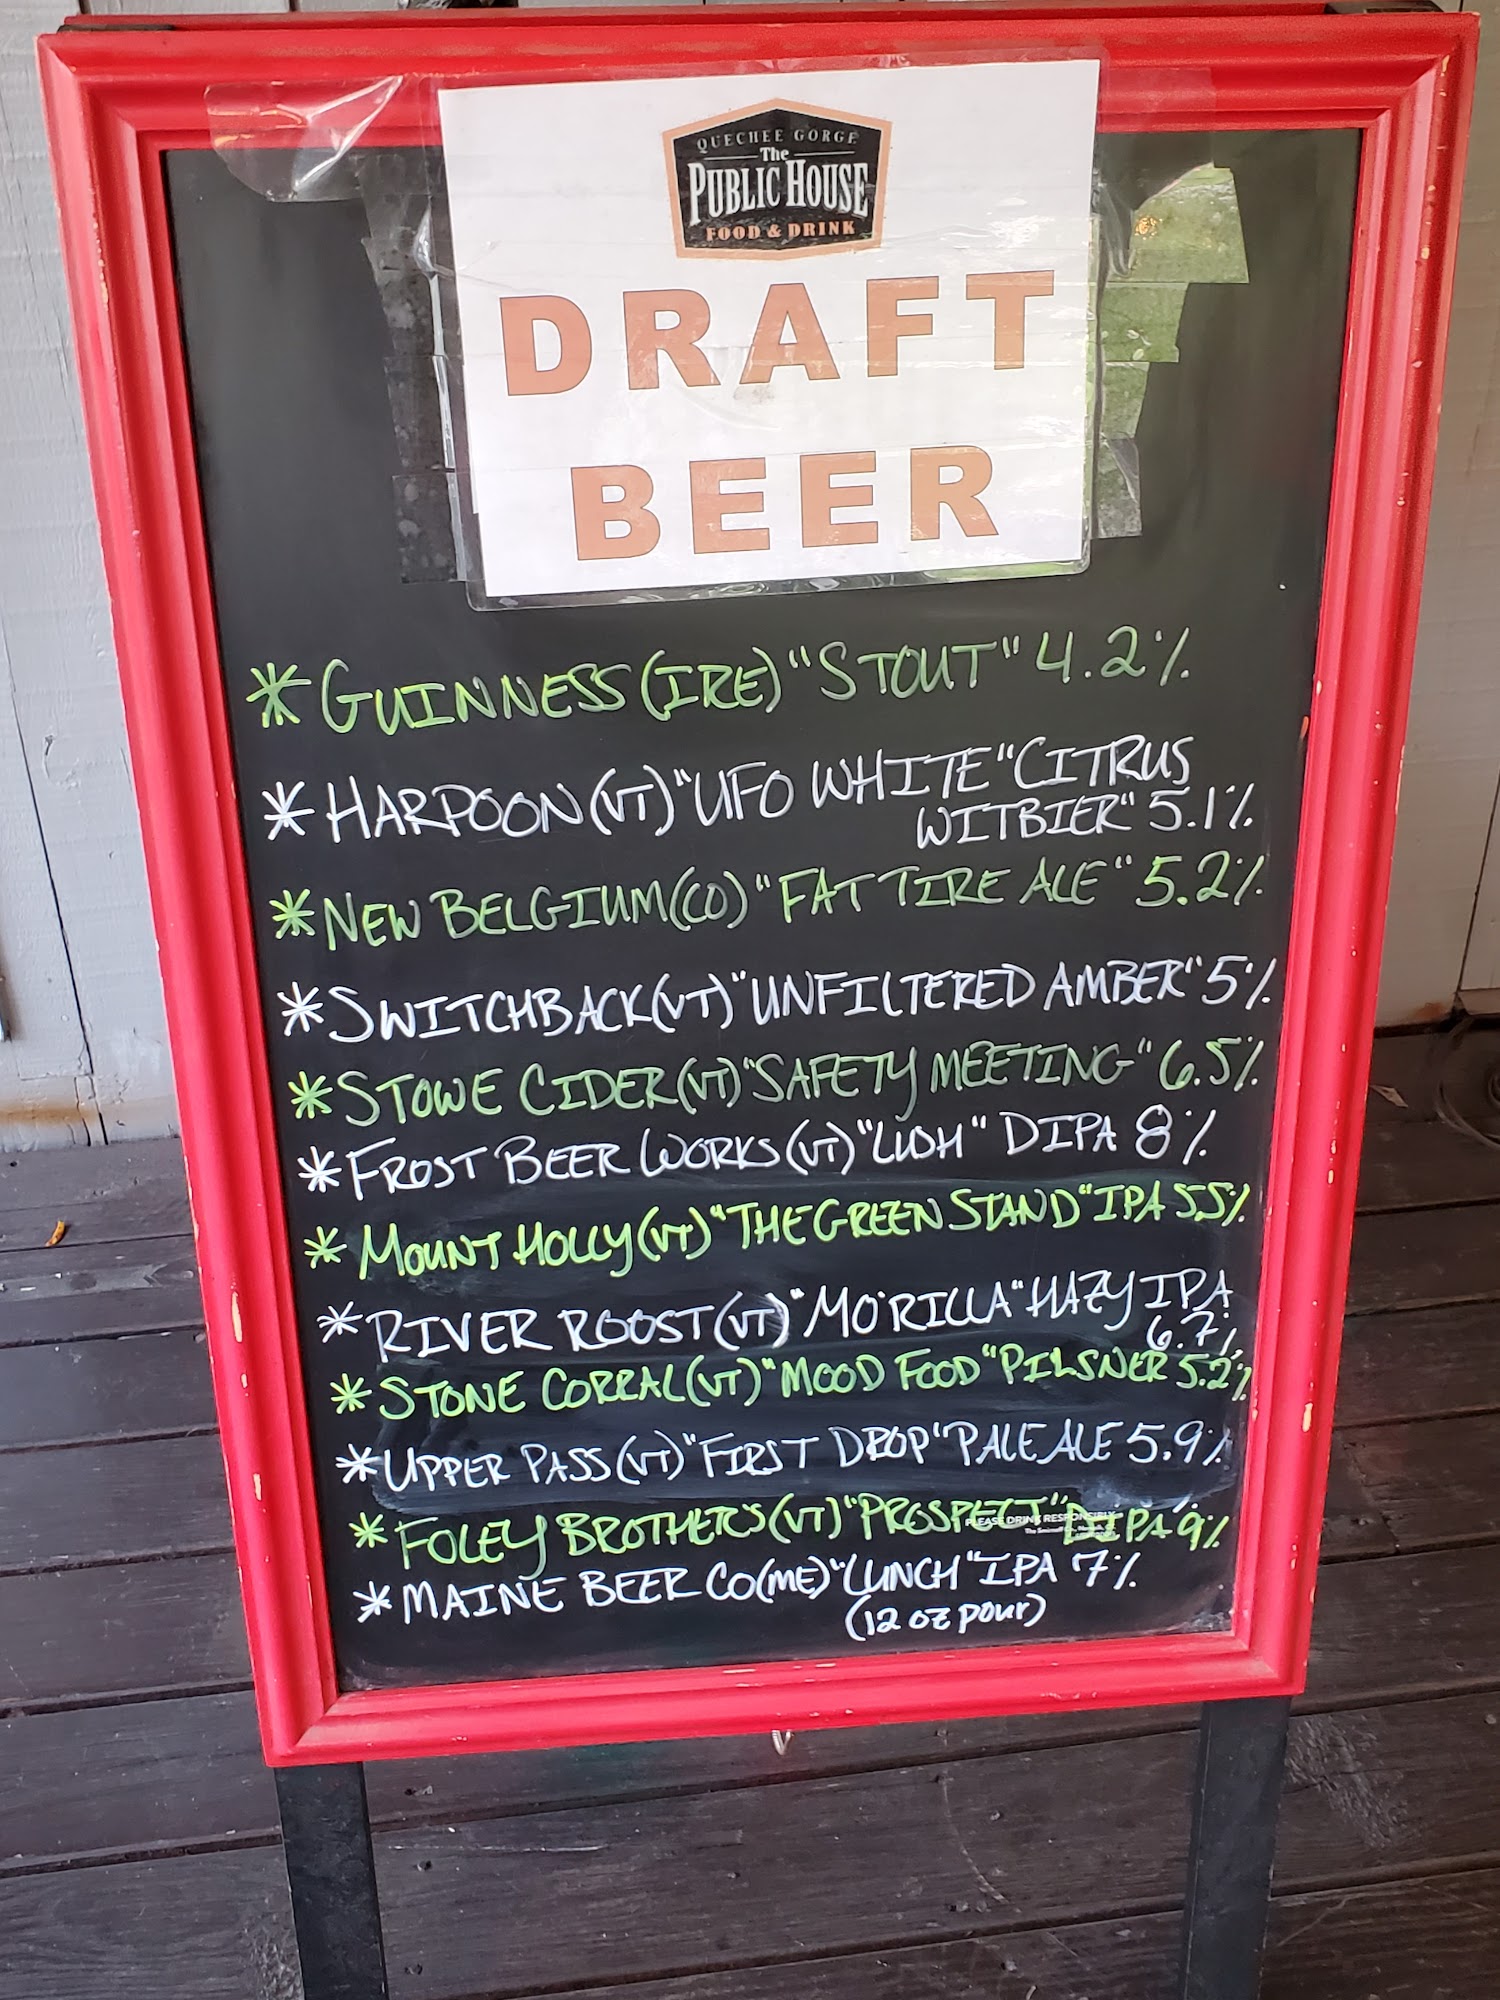 QUECHEE GORGE
The
PUBLIC HOUSE
FOOD & DRINK
DRAFT
BEER
* GUINNESS (IRE) "STOUT" 4.2%
* HARPOON (VT) "UFO WHITE "CITRUS
WITBIER" 5.1%
* NEW BELGIUM (CO) "FAT TIRE ALE" 5.2%
* SWITCHBACK (VT) "UNFILTERED AMBER" 5%
* STOWE CIDER (VT) "SAFETY MEETING" 6.5%
* FROST BEER WORKS (VT) "LUSH" DIPA 8%
* MOUNT HOLLY (VT) "THE GREEN STAND" IPA 5.5%
* RIVER ROOST (VT) "MO'RILLA" HAZY IPA
6.7%
* STONE CORRAL (VT) "MOOD FOOD" PILSNER 5.2%
* UPPER PASS (VT) "FIRST DROP" PALE ALE 5.9%
* FOLEY BROTHERS (VT) "PROSPECT" DIPA 9%
PLEASE DRINK RESPONSIBLY.
* MAINE BEER CO (ME) "LUNCH" IPA 7%
(12 oz pour)